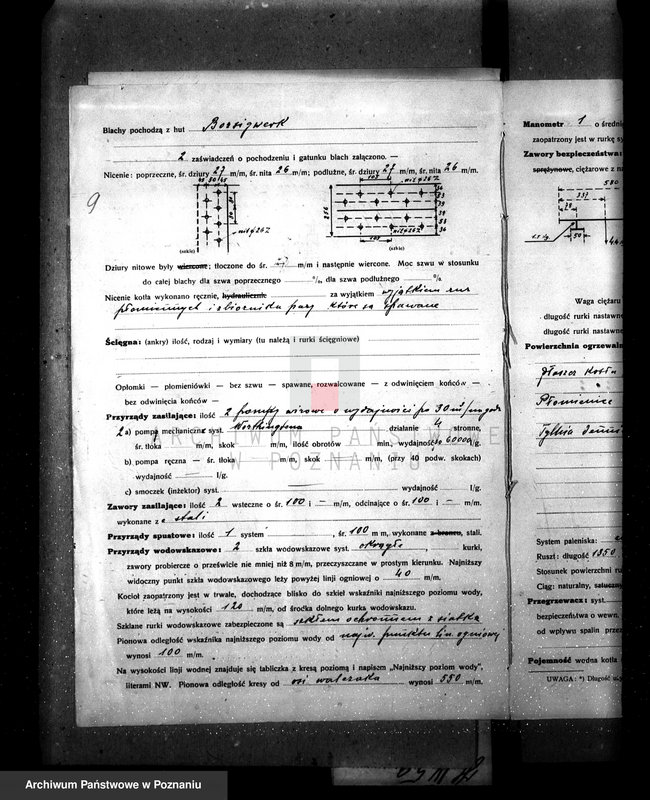 Blachy pochodzą z hut Borsigwerk
2 zaświadczeń o pochodzeniu i gatunku blach załączono. —
Nicenie: poprzeczne, śr. dziury 27 m/m, śr. nita 26 m/m; podłużne, śr. dziury 27 m/m, śr. nita 26 m/m.
9
(szkic) (szkic)
Dziury nitowe były wiercone; tłoczone do śr. m/m i następnie wiercone. Moc szwu w stosunku
do całej blachy dla szwa poprzecznego %, dla szwa podłużnego %
Nicenie kotła wykonano ręcznie, hydraulicznie za wyjątkiem wyjątkiem rur
płomiennych i zbiornika pary które są spawane
Ścięgna: (ankry) ilość, rodzaj i wymiary (tu należą i rurki ścięgniowe)
Opłomki — płomieniówki — bez szwu — spawane, rozwalcowane — z odwinięciem końców —
bez odwinięcia końców —
Przyrządy zasilające: ilość 2 pompy o wydajności po 30
2 a) pompa mechaniczna syst. Worthingtona działanie 4 stronne,
śr. tłoka m/m, skok m/m, ilość obrotów min, wydajność 60000 l/g.
b) pompa ręczna — śr. tłoka m/m, skok m/m, (przy 40 podw. skokach)
wydajność l/g.
c) smoczek (inżektor) syst. wydajność l/g.
Zawory zasilające: ilość 2 wsteczne o śr. 100 i — m/m, odcinające o śr. 100 i — m/m.
wykonane z stali
Przyrządy spustowe: ilość 1 system , śr. 100 m/m, wykonane z bronzu, stali.
Przyrządy wodowskazowe: 2 szkła wodowskazowe syst. okrągłe , kurki,
zawory probiercze o prześwicie nie mniej niż 8 m/m, przeczyszczane w prostym kierunku. Najniższy
widoczny punkt szkła wodowskazowego leży powyżej linji ogniowej o 40 m/m.
Kocioł zaopatrzony jest w trwałe, dochodzące blisko do szkieł wskaźniki najniższego poziomu wody,
które leżą na wysokości 120 m/m, od środka dolnego kurka wodowskazu.
Szklane rurki wodowskazowe zabezpieczone są szkłem ochronnem z siatką
Pionowa odległość wskaźnika najniższego poziomu wody od najw. punktu lin. ogniowej
wynosi 100 m/m.
Na wysokości linji wodnej znajduje się tabliczka z kresą poziomą i napisem „Najniższy poziom wody",
literami NW. Pionowa odległość kresy od osi walczaka wynosi 550 m/m.
Manometr 1 o średnic
zaopatrzony jest w rurkę sy
Zawory bezpieczeństwa:
sprężynowe, ciężarowe z na
580
237
50
Waga ciężaru
długość rurki nastawne
długość rurki nastawne
Powierzchnia ogrzewaln
Płaszcz kotła
Płomienice
System paleniska:
Ruszt: długość 1850
Stosunek powierzchni ru
Ciąg: naturalny, sztuczny
Przegrzewacz: syst.
bezpieczeństwa o wewn.
od wpływu spalin prze
Pojemność wodna kotła
UWAGA: *) Długość
ARCHIWUM PAŃSTWOWE
W POZNANIU
Archiwum Państwowe w Poznaniu